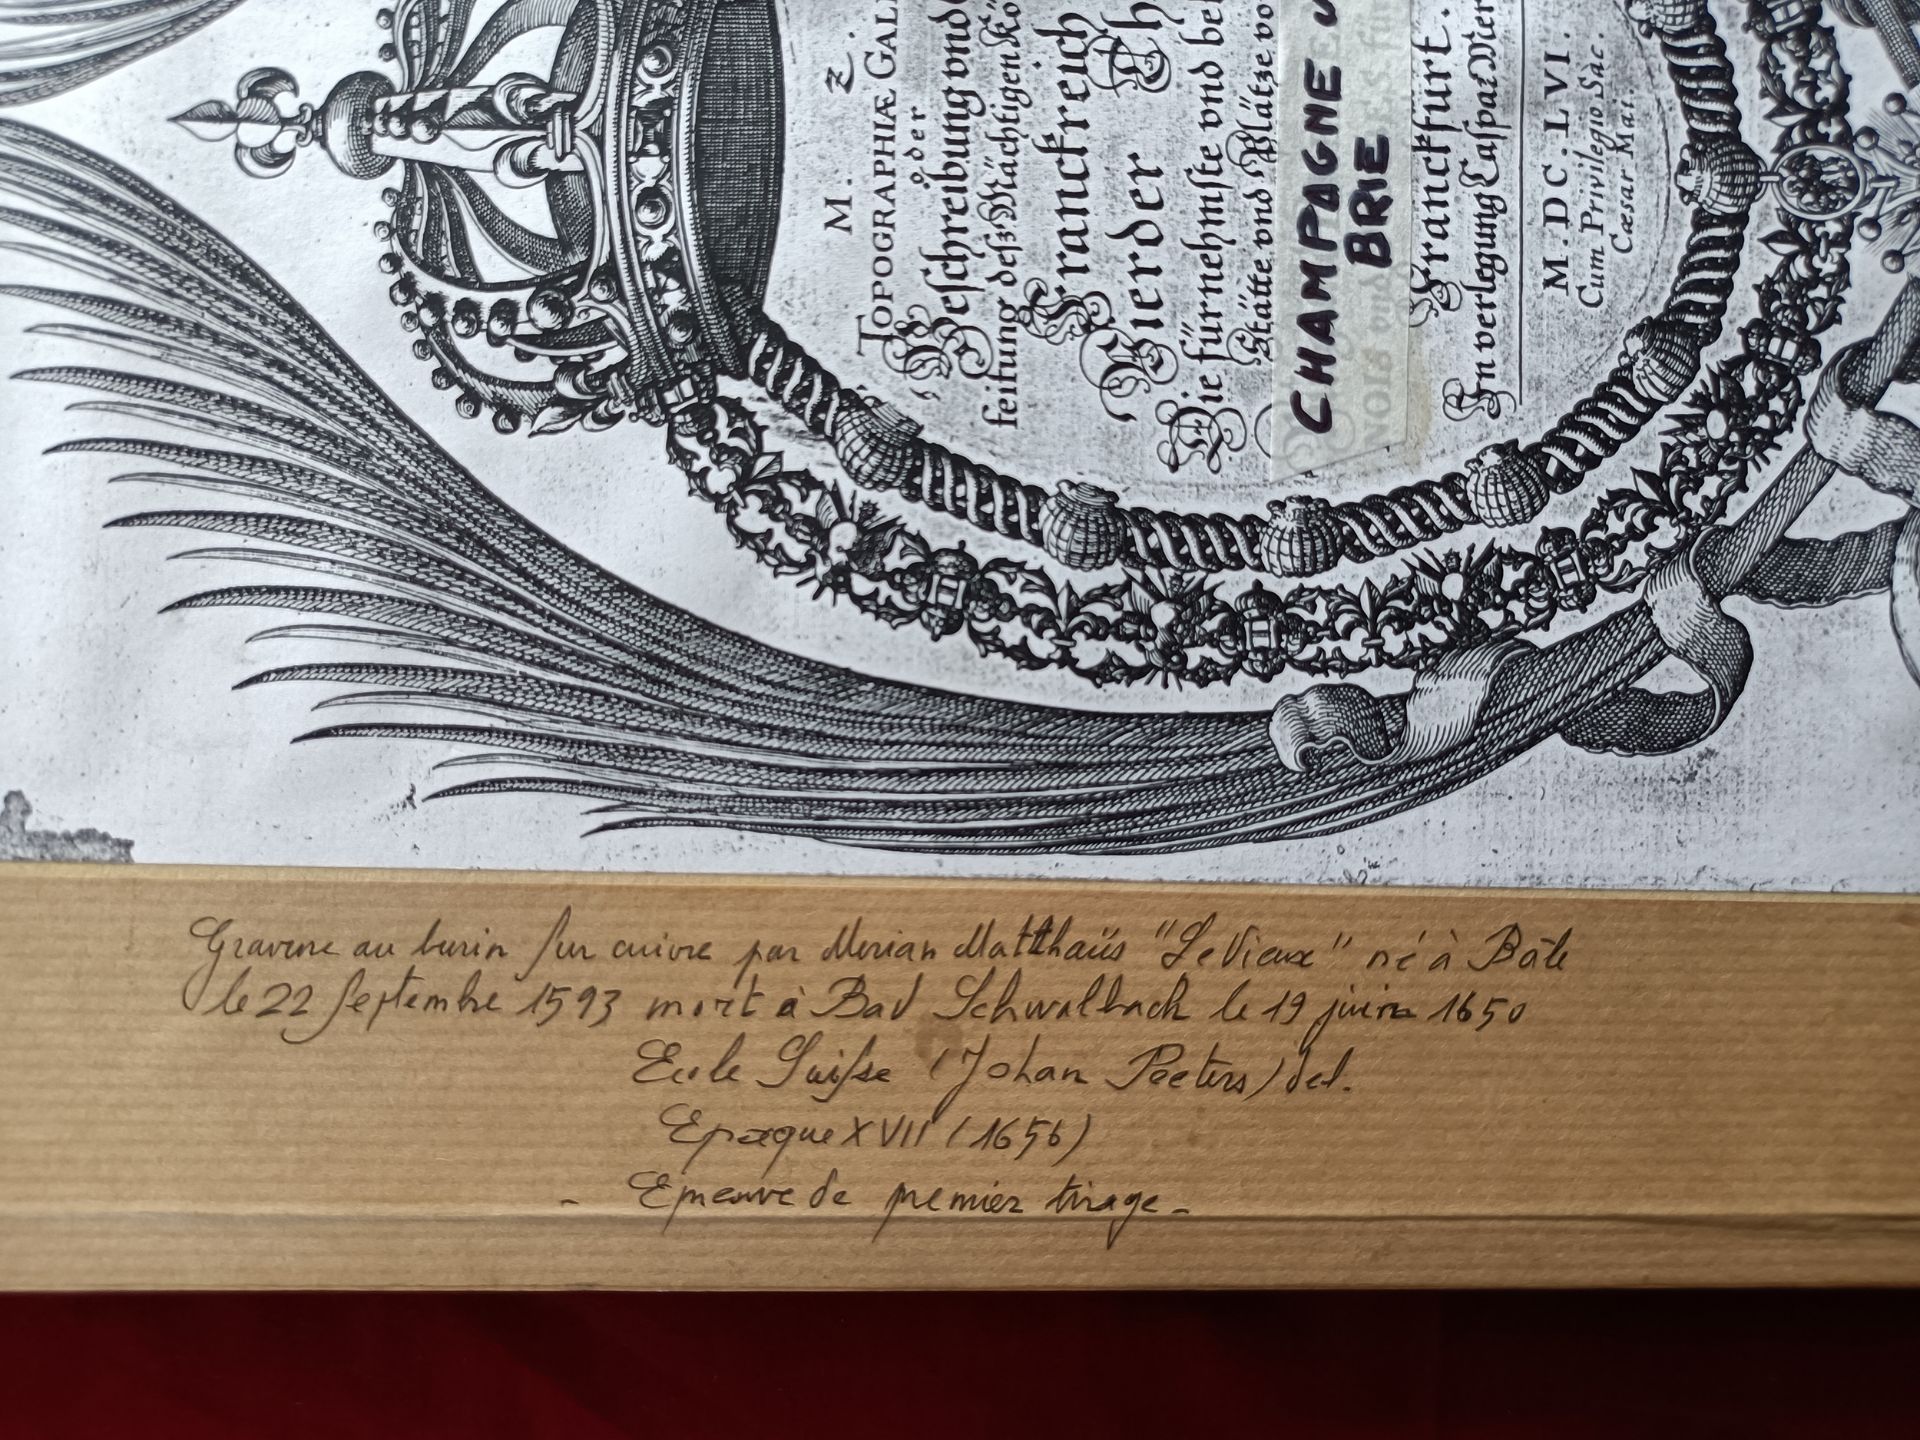 M. Z.
TOPOGRAPHIÆ GALL
oder
Beschreibung vnd
feitung desz Mächtigen Kö
Franckreich
Vierder Th
Die fürnehmste vnd bek
Stätte vnd Plätze vo
CHAMPAGNE
BRIE
Franckfurt.
In verlegung Caspar Mer
M.DC.LVI.
Cum Privilegio Sac.
Cæsar Mai.
Gravure au burin sur cuivre par Merian Matthaüs "Le Vieux" né à Bâle
le 22 septembre 1593 mort à Bad Schwalbach le 19 juin 1650
Ecole Suisse (Johan Peeters) del.
Epoque XVII (1656)
- Epreuve de premier tirage -